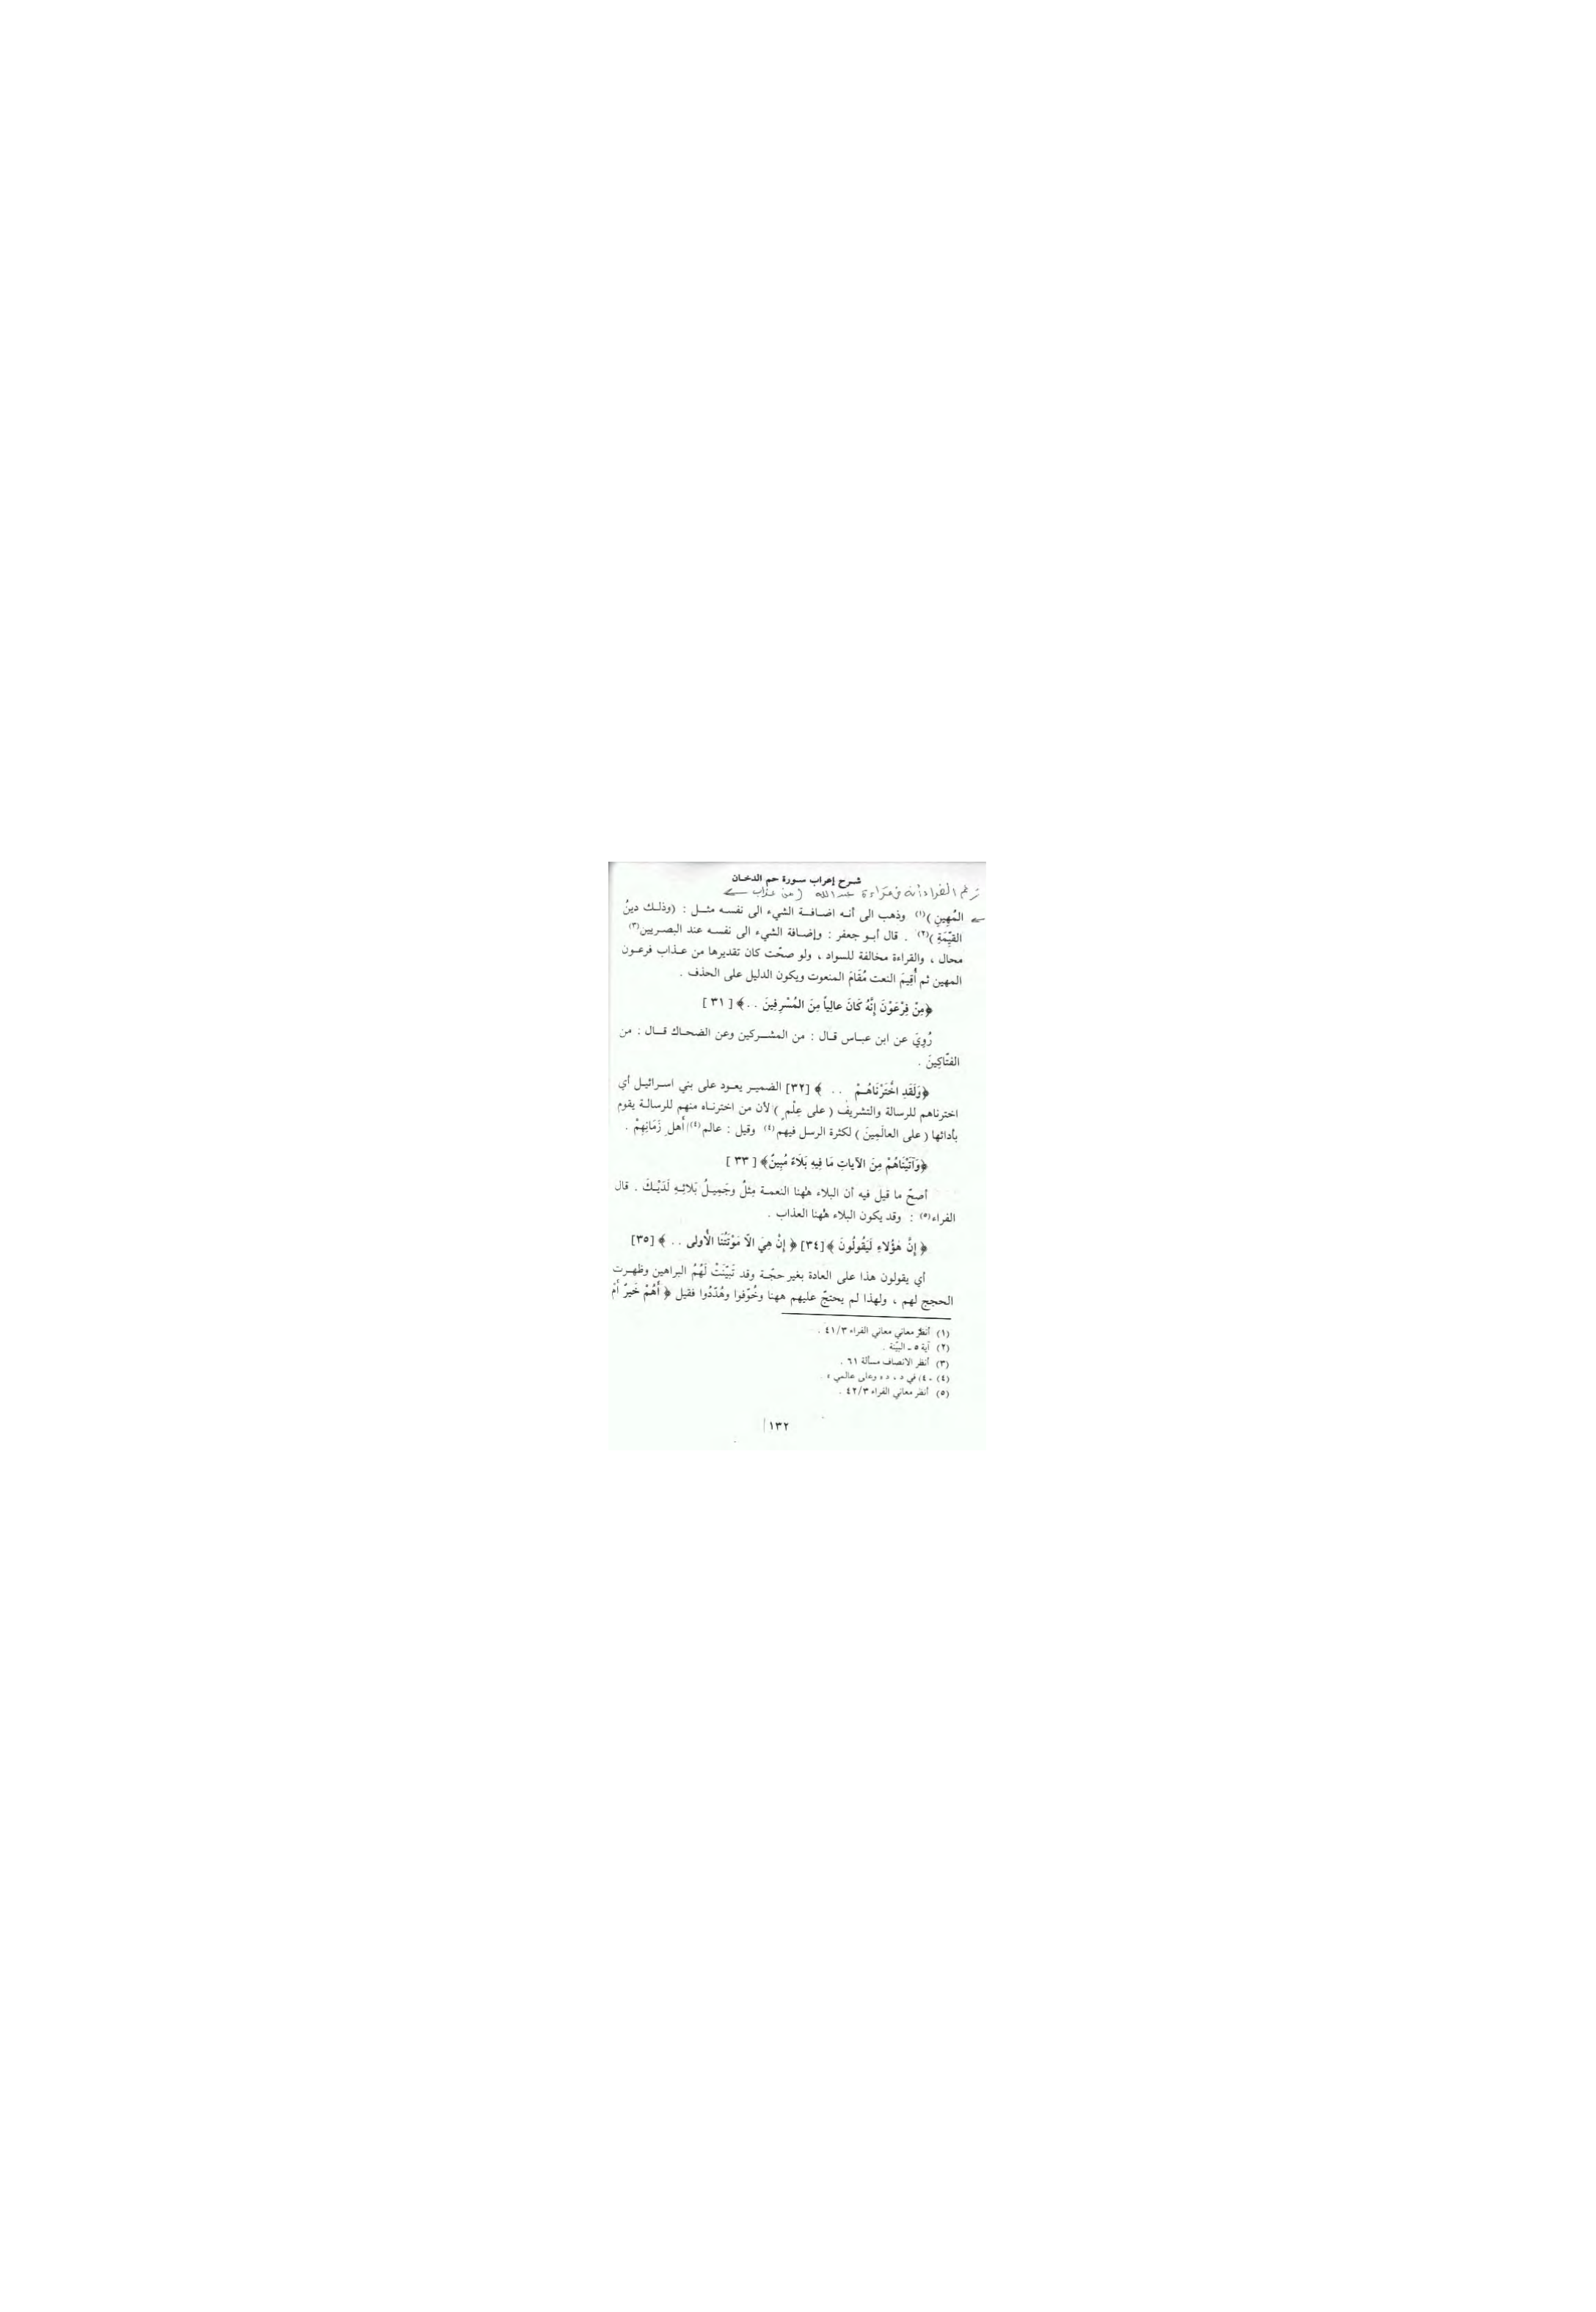 شرح إعراب سورة حم الدخان
زعم الفراء أنه في قراءة عبدالله ( من عذاب
المُهِينِ )(١) وذهب الى أنه اضافة الشيء الى نفسه مثل : (وذلك دينُ
القيِّمَةِ )(٢) . قال أبو جعفر : وإضافة الشيء الى نفسه عند البصريين(٣)
محال ، والقراءة مخالفة للسواد ، ولو صحّت كان تقديرها من عذاب فرعون
المهين ثم أُقِيمَ النعت مُقَامَ المنعوت ويكون الدليل على الحذف .
﴿مِنْ فِرْعَوْنَ إِنَّهُ كَانَ عالِياً مِنَ المُسْرِفِينَ . .﴾ [ ٣١ ]
رُوِيَ عن ابن عباس قال : من المشركين وعن الضحاك قال : من
الفتّاكِينَ .
﴿وَلَقَدِ اخْتَرْنَاهُمْ . . ﴾ [٣٢] الضمير يعود على بني اسرائيل أي
اخترناهم للرسالة والتشريف ( على عِلْمٍ ) لأن من اخترناه منهم للرسالة يقوم
بأدائها ( على العالَمِينَ ) لكثرة الرسل فيهم(٤) وقيل : عالم(٤) أهل زَمَانِهِمْ .
﴿وَآتَيْنَاهُمْ مِنَ الآياتِ مَا فِيهِ بَلَاءٌ مُبِينٌ﴾ [ ٣٣ ]
أصحّ ما قيل فيه أن البلاء هٰهنا النعمة مِثلُ وجَمِيلُ بَلائِهِ لَدَيْكَ . قال
الفراء(٥) : وقد يكون البلاء هٰهنا العذاب .
﴿ إنَّ هٰؤُلاءِ لَيَقُولُونَ ﴾ [٣٤] ﴿ إنْ هِيَ الّا مَوْتَتُنَا الأُولى . . ﴾ [٣٥]
أي يقولون هذا على العادة بغير حجّة وقد تَبيّنَتْ لَهُمُ البراهين وظهرت
الحجج لهم ، ولهذا لم يحتجّ عليهم ههنا وخُوِّفوا وهُدِّدُوا فقيل ﴿ أَهُمْ خَيرٌ أَمْ
(١) أنظر معاني معاني الفراء ٤١/٣ .
(٢) آية ٥ ـ البيّنة .
(٣) أنظر الانصاف مسألة ٦١ .
(٤) ـ ٤) في د ، د « وعلى عالمي » .
(٥) أنظر معاني الفراء ٤٢/٣ .
١٣٢